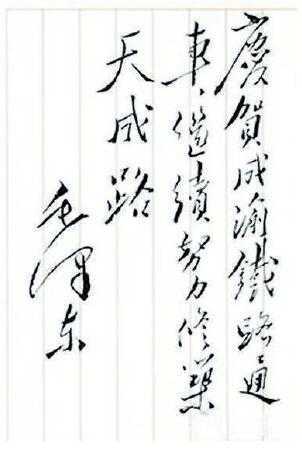 慶賀成渝鐵路通
車,繼續努力修築
天成路
毛澤东